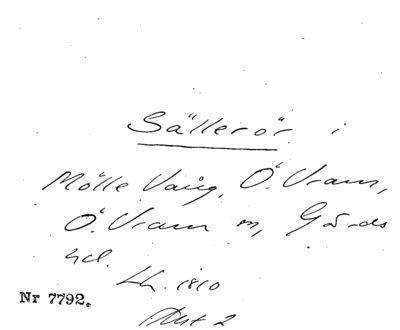 Sälleröř i
Mölle Vång, Ö. Vram,
Ö. Vram sn, Gärds
hd.
Lh. 1810
Akt 2
Nr 7792.